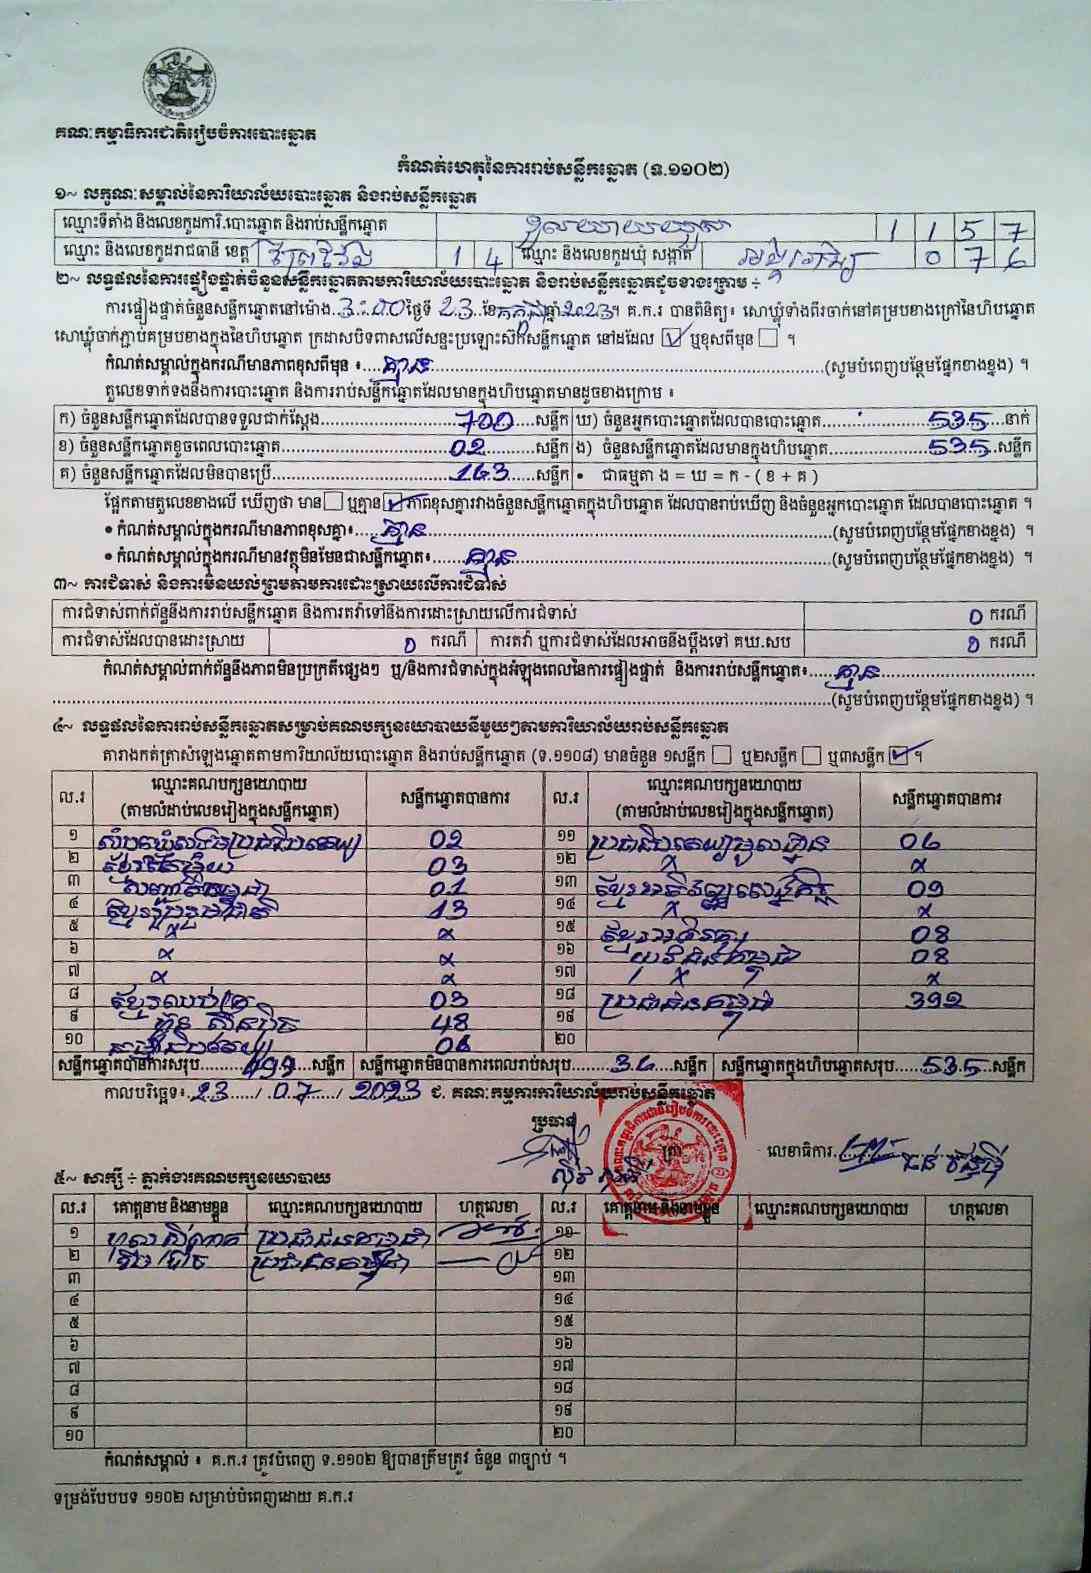 គណៈកម្មាធិការជាតិរៀបចំការបោះឆ្នោត
កំណត់ហេតុនៃការរាប់សន្លឹកឆ្នោត (ទ.១១០២)
១~ លក្ខណៈសម្គាល់នៃការិយាល័យបោះឆ្នោត និងរាប់សន្លឹកឆ្នោត
ឈ្មោះទីតាំង និងលេខកូដការិ.បោះឆ្នោត និងរាប់សន្លឹកឆ្នោត 1 1 5 7
ឈ្មោះ និងលេខកូដរាជធានី ខេត្ត ព្រៃវែង 1 4 ឈ្មោះ និងលេខកូដឃុំ សង្កាត់ 0 7 6
២~ លទ្ធផលនៃការផ្ទៀងផ្ទាត់ចំនួនសន្លឹកឆ្នោតតាមការិយាល័យបោះឆ្នោត និងរាប់សន្លឹកឆ្នោតដូចខាងក្រោម ÷
ការផ្ទៀងផ្ទាត់ចំនួនសន្លឹកឆ្នោតនៅម៉ោង 3:00 ថ្ងៃទី 23 ខែ កក្កដា ឆ្នាំ 2023។ គ.ក.រ បានពិនិត្យ៖ សោឃ្លុំទាំងពីរចាក់នៅគម្របខាងក្រៅនៃហិបឆ្នោត
សោឃ្លុំចាក់ភ្ជាប់គម្របខាងក្នុងនៃហិបឆ្នោត ក្រដាសបិទពាសលើសន្ទះប្រឡោះស៊កសន្លឹកឆ្នោត នៅដដែល ☑ ឬខុសពីមុន ☐ ។
កំណត់សម្គាល់ក្នុងករណីមានភាពខុសពីមុន ៖ គ្មាន (សូមបំពេញបន្ថែមផ្នែកខាងខ្នង) ។
តួលេខទាក់ទងនឹងការបោះឆ្នោត និងការរាប់សន្លឹកឆ្នោតដែលមានក្នុងហិបឆ្នោតមានដូចខាងក្រោម ៖
ក) ចំនួនសន្លឹកឆ្នោតដែលបានទទួលជាក់ស្តែង 700 សន្លឹក ឃ) ចំនួនអ្នកបោះឆ្នោតដែលបានបោះឆ្នោត 535 នាក់
ខ) ចំនួនសន្លឹកឆ្នោតខូចពេលបោះឆ្នោត 02 សន្លឹក ង) ចំនួនសន្លឹកឆ្នោតដែលមានក្នុងហិបឆ្នោត 535 សន្លឹក
គ) ចំនួនសន្លឹកឆ្នោតដែលមិនបានប្រើ 163 សន្លឹក • ជាធម្មតា ង = ឃ = ក - ( ខ + គ )
ផ្អែកតាមតួលេខខាងលើ ឃើញថា មាន ☐ ឬគ្មាន ☑ ភាពខុសគ្នារវាងចំនួនសន្លឹកឆ្នោតក្នុងហិបឆ្នោត ដែលបានរាប់ឃើញ និងចំនួនអ្នកបោះឆ្នោត ដែលបានបោះឆ្នោត ។
• កំណត់សម្គាល់ក្នុងករណីមានភាពខុសគ្នា៖ គ្មាន (សូមបំពេញបន្ថែមផ្នែកខាងខ្នង) ។
• កំណត់សម្គាល់ក្នុងករណីមានវត្ថុមិនមែនជាសន្លឹកឆ្នោត៖ គ្មាន (សូមបំពេញបន្ថែមផ្នែកខាងខ្នង) ។
៣~ ការជំទាស់ និងការមិនយល់ព្រមតាមការដោះស្រាយលើការជំទាស់
ការជំទាស់ពាក់ព័ន្ធនឹងការរាប់សន្លឹកឆ្នោត និងការតវ៉ាទៅនឹងការដោះស្រាយលើការជំទាស់ 0 ករណី
ការជំទាស់ដែលបានដោះស្រាយ 0 ករណី ការតវ៉ា ឬការជំទាស់ដែលអាចនឹងប្តឹងទៅ គឃ.សប 0 ករណី
កំណត់សម្គាល់ពាក់ព័ន្ធនឹងភាពមិនប្រក្រតីផ្សេងៗ ឬ/និងការជំទាស់ក្នុងអំឡុងពេលនៃការផ្ទៀងផ្ទាត់ និងការរាប់សន្លឹកឆ្នោត៖ គ្មាន
(សូមបំពេញបន្ថែមផ្នែកខាងខ្នង) ។
៤~ លទ្ធផលនៃការរាប់សន្លឹកឆ្នោតសម្រាប់គណបក្សនយោបាយនីមួយៗតាមការិយាល័យរាប់សន្លឹកឆ្នោត
តារាងកត់ត្រាសំឡេងឆ្នោតតាមការិយាល័យបោះឆ្នោត និងរាប់សន្លឹកឆ្នោត (ទ.១១០៨) មានចំនួន ១សន្លឹក ☐ ឬ២សន្លឹក ☐ ឬ៣សន្លឹក ☑ ។
ល.រ ឈ្មោះគណបក្សនយោបាយ (តាមលំដាប់លេខរៀងក្នុងសន្លឹកឆ្នោត) សន្លឹកឆ្នោតបានការ ល.រ ឈ្មោះគណបក្សនយោបាយ (តាមលំដាប់លេខរៀងក្នុងសន្លឹកឆ្នោត) សន្លឹកឆ្នោតបានការ
១ សំបុកឃ្មុំសង្គមប្រជាធិបតេយ្យ 02 ១១ ប្រជាធិបតេយ្យមូលដ្ឋាន 06
២ ខ្មែរតែមួយ 03 ១២ x x
៣ សញ្ជាតិកម្ពុជា 01 ១៣ ខ្មែរអភិវឌ្ឍន៍សេដ្ឋកិច្ច 09
៤ ខ្មែររួបរួមជាតិ 13 ១៤ x x
៥ x x ១៥ ខ្មែរអភិរក្ស 08
៦ x x ១៦ យុវជនកម្ពុជា 08
៧ x x ១៧ x x
៨ ខ្មែរឈប់ក្រ 03 ១៨ ប្រជាជនកម្ពុជា 392
៩ ហ៊្វុនស៊ិនប៉ិច 48 ១៩
១០ កម្លាំងប្រជាធិបតេយ្យ 06 ២០
សន្លឹកឆ្នោតបានការសរុប 499 សន្លឹក សន្លឹកឆ្នោតមិនបានការពេលរាប់សរុប 36 សន្លឹក សន្លឹកឆ្នោតក្នុងហិបឆ្នោតសរុប 535 សន្លឹក
កាលបរិច្ឆេទ៖ 23 / 07 / 2023 ជ. គណៈកម្មការការិយាល័យរាប់សន្លឹកឆ្នោត
ប្រធាន ត្រា លេខាធិការ
៥~ សាក្សី ÷ ភ្នាក់ងារគណបក្សនយោបាយ
ល.រ គោត្តនាម និងនាមខ្លួន ឈ្មោះគណបក្សនយោបាយ ហត្ថលេខា ល.រ គោត្តនាម និងនាមខ្លួន ឈ្មោះគណបក្សនយោបាយ ហត្ថលេខា
១ ប្រជាជនកម្ពុជា ១១
២ ប្រជាជនកម្ពុជា ១២
៣ ១៣
៤ ១៤
៥ ១៥
៦ ១៦
៧ ១៧
៨ ១៨
៩ ១៩
១០ ២០
កំណត់សម្គាល់ ៖ គ.ក.រ ត្រូវបំពេញ ទ.១១០២ ឱ្យបានត្រឹមត្រូវ ចំនួន ៣ច្បាប់ ។
ទម្រង់បែបបទ ១១០២ សម្រាប់បំពេញដោយ គ.ក.រ